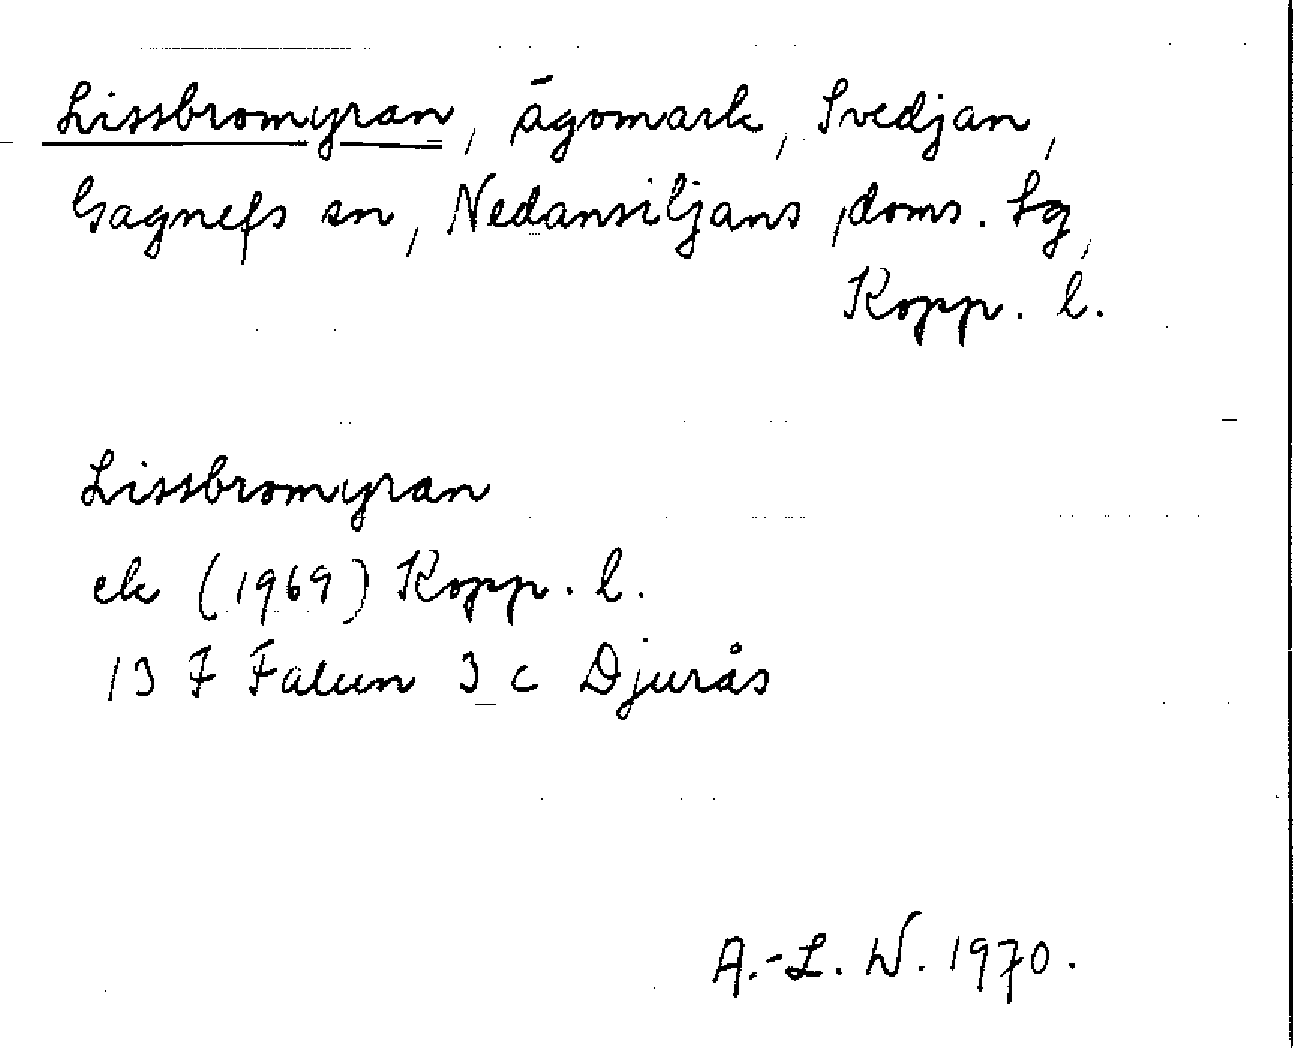 Lissbromyran, ägomark, Svedjan,
Gagnefs sn, Nedansiljans doms. tg,
Kopp. l.
Lissbromyran
ek (1969) Kopp. l.
13 F Falun 3 c Djurås
A.-L. W. 1970.